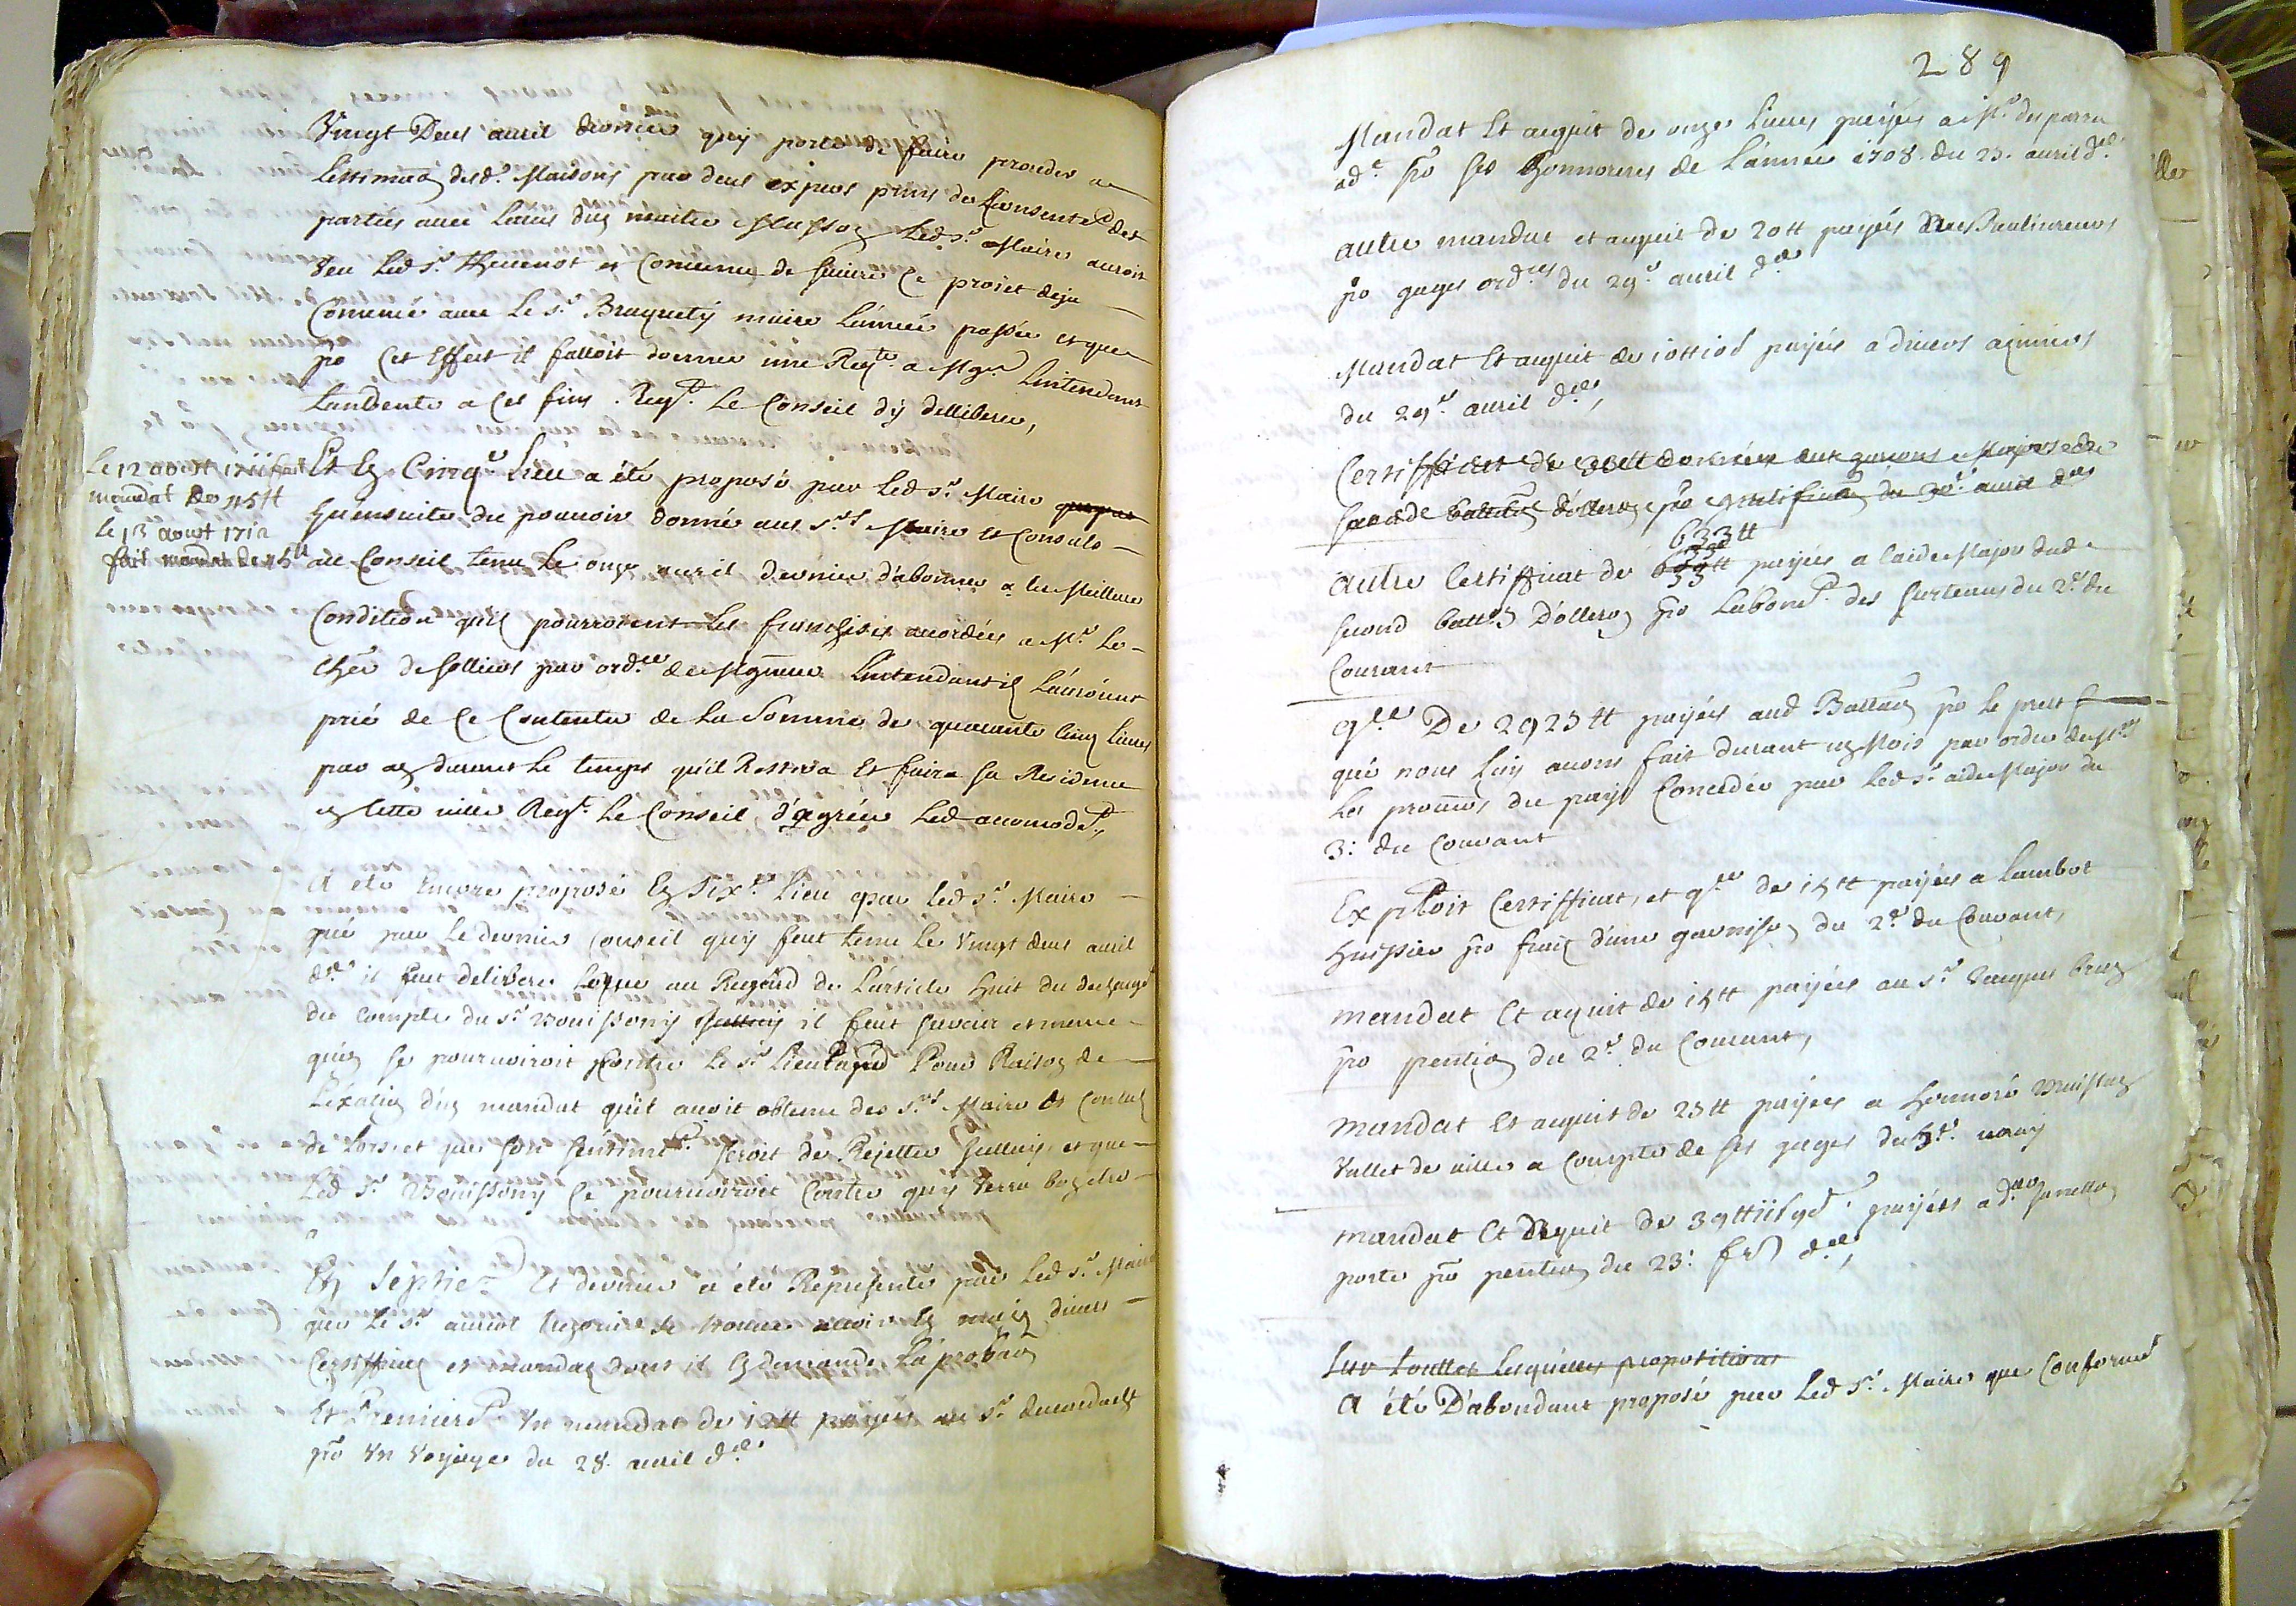 Vingt Deus auril dernier quy porte de faire proceder a
Lestimaõn desd.s Maisons par deus experts prins du Consentem.t des
parties auec Lauis dun maitre Masson Led s.r Maire auroit
veu Led s.r Theuenot et Conuenu de suiure Ce proiet deja
Conuenu auec Le s.r Braquety maire L'année passée et que
po Cet Effect il falloit donner une Req.te a Mgr Lintendant
tandente a Ces fins . Req.t Le Conseil d'y delliberer,
Le 12 aoust 1711 fait
mandat de 45 ₶
Le 13 aoust 1712
fait mandat de 45 ₶
Et En Cinq.e Lieu a été proposé par Led s.r Maire
qu'ensuite du pouuoir donné aus s.rs Maire et Consuls
au Conseil tenu Le onze auril dernier d'abonner a la Meilleure
Condition qu'ils pourroient Les franchises acordées a M.r Le
Cher de Sollies par ord.ce de Mgneur Lintendant ils L'auroient
prié de Ce Contenter de La Somme de quarante Cinq Liures
par an durant Le temps qu'il Restera Et faira Sa Residence
en Cette uille Req.t Le Conseil d'agréer Led accomodem.t,
A eté Encore proposé En Six.e Lieu par Led s.r Maire
que par Le dernier Conseil quy feut tenu Le Vingt deus auril
d.er il feut deliberé Lorsque au Regard de L'article huit du dechargé
du Compte du s.r Bouissony il feut
qu'on se pouruoiroit Contre Le s.r Lieutaud Pour Raison de
L'exaõn d'un mandat qu'il auoit obtenu des s.rs Maire et Consuls
de Lors et que son sentiment Seroit de Rejetter et que
Led s.r Bouissony Ce pouruoiroit Contre quy Verra bon etre
En Septie.e Et dernier a été Representé par Led s.r Maire
que Le s.r auriot tresorier se trouue auoir En main diuers
Certifficats et mandats dont il En demande La probaõn
Et Premierem.t Un mandat de 12 ₶ payées au s.r
po Un Voyage du 28. auril d.er
289
Mandat Et acquit de onze Liures payées a M.r du parra
ad.t po ses Honnoreres de L'année 1708. du 23. auril d.er
autre mandat et acquit de 20 ₶ payées
po gages ord.res du 29.e auril d.er
Mandat Et acquit de 10 ₶ 10 s payées a diuers
du 29.e auril d.er,
Certifficat de
Second
633 ₶
autre Certifficat de payées a L'aide Major dud
second batt.on D'olleron po L'abonem.t des du 2.e du
Courant
q.ce De 2925 ₶ payées aud Battaõn po Le prest
que nous Luy auons fait durant un Mois par ordre de M.rs
Les procurs du pays Concedée par Led s.r aide Major du
3: du Courant
Exploit Certifficat, et q.ce de 15 ₶ payées a Lambot
huissier po frais d'une garnison du 2.e du Courant,
mandat Et aquit de 15 ₶ payées au s.r Jacques brun
po pention du 2.e du Courant,
mandat Et acquit de 25 ₶ payées a Honnoré
Vallet de uille a Compte de ses gages du
mandat Et Acquit de 39 ₶ 11 s 9 d payées a
porte po pention du 23: d.er,
Sur touttes Lesquelles propositions
A été D'abondant proposé par Led s.r Maire que Conformem.t